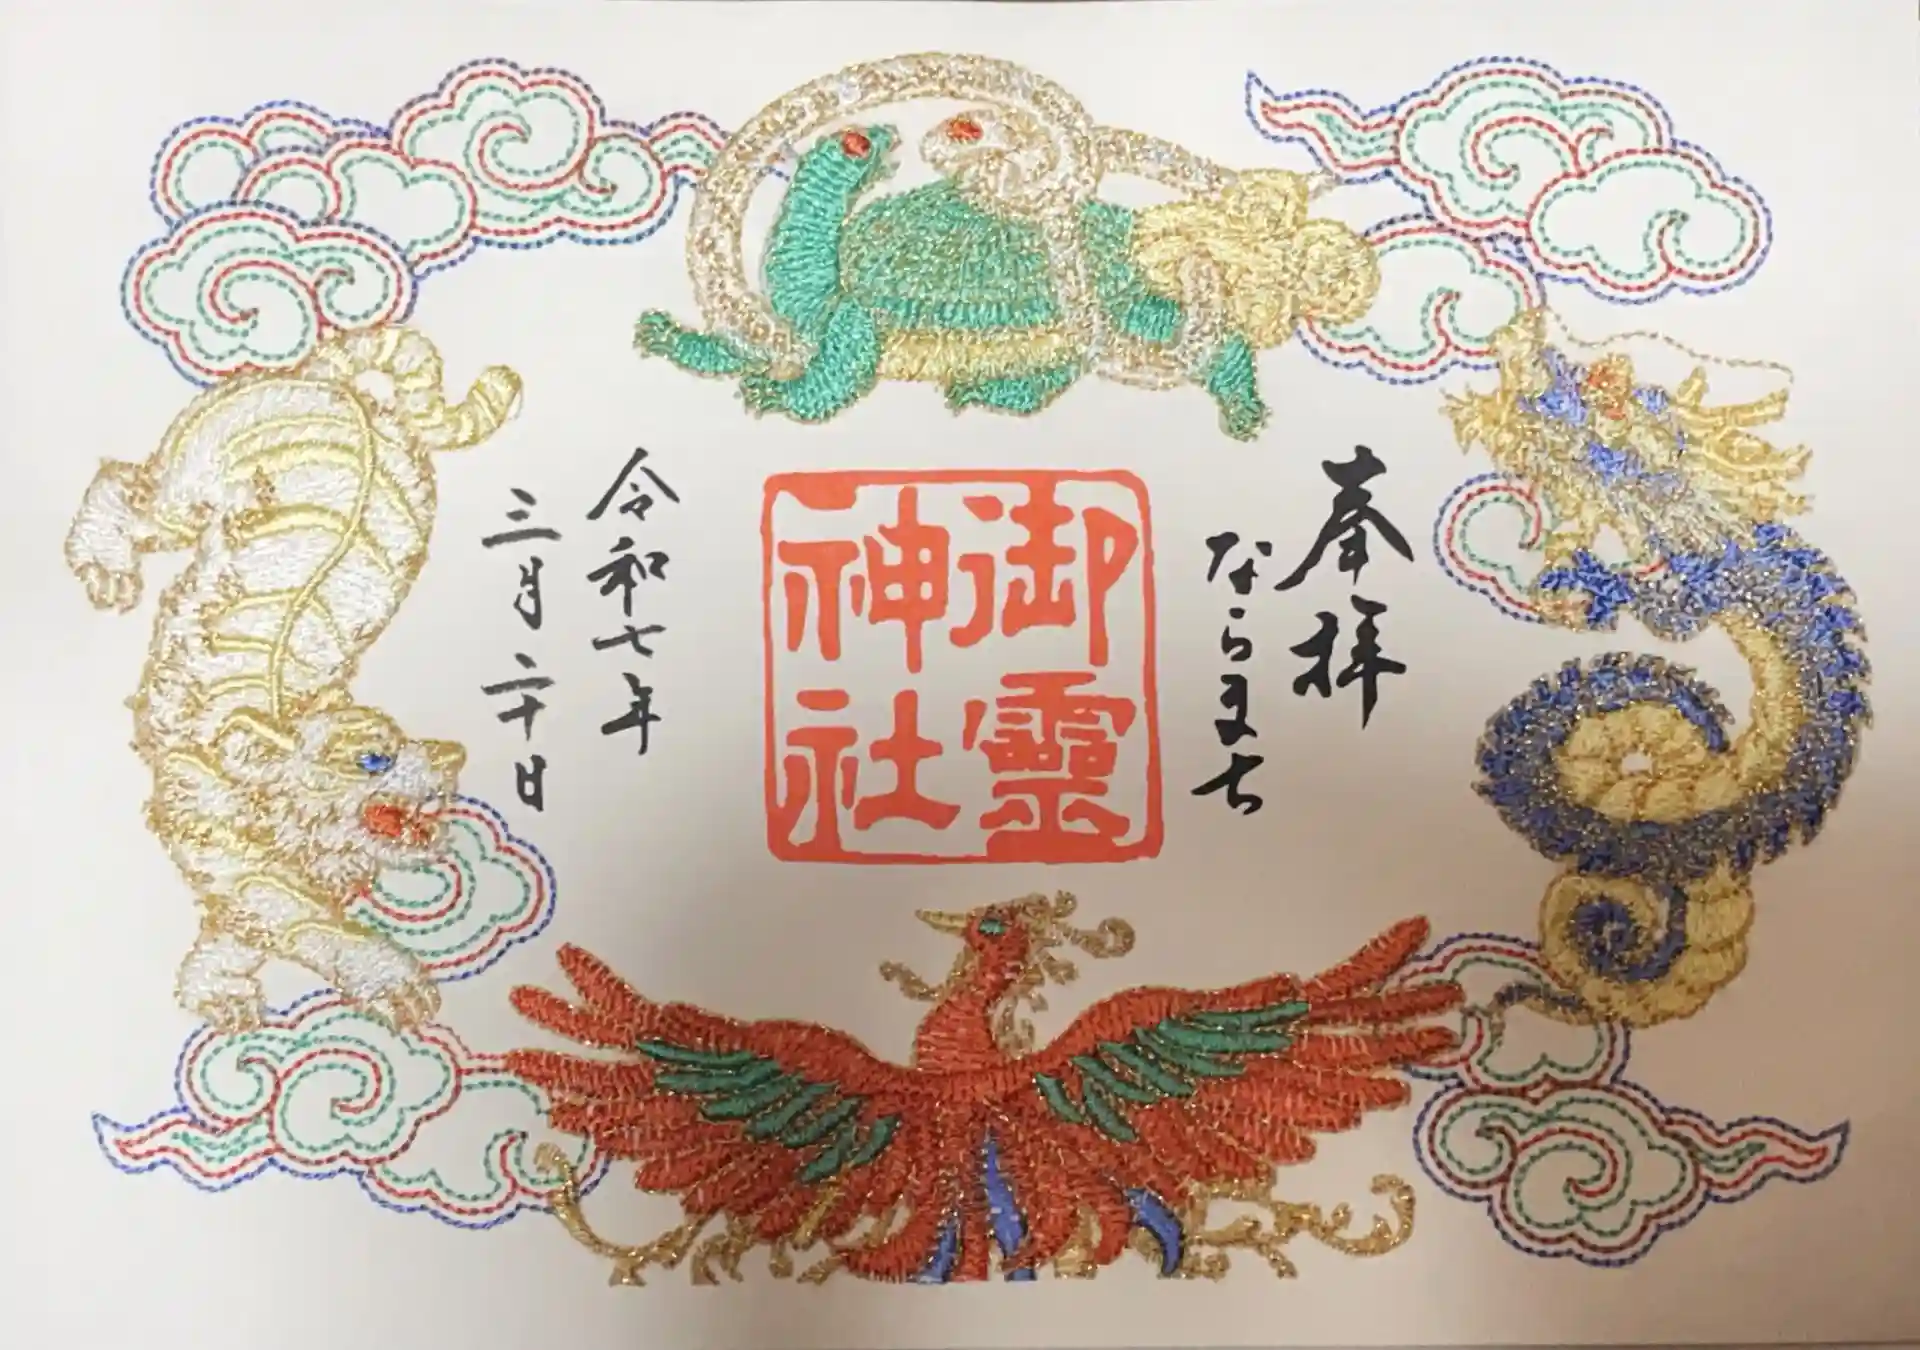 奉拝
ならまち
御霊
神社
令和七年
三月二十日